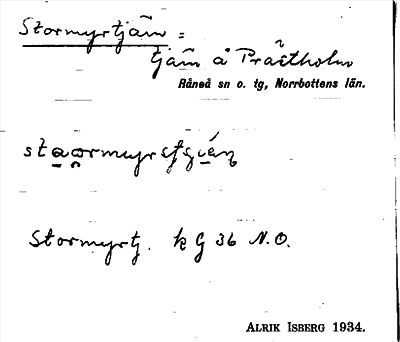 Stormyrtjärn =
tjärn å Prästholm
Råneå sn o. tg, Norrbottens län.
Stormyrtj. k G 36 N.O.
ALRIK ISBERG 1934.